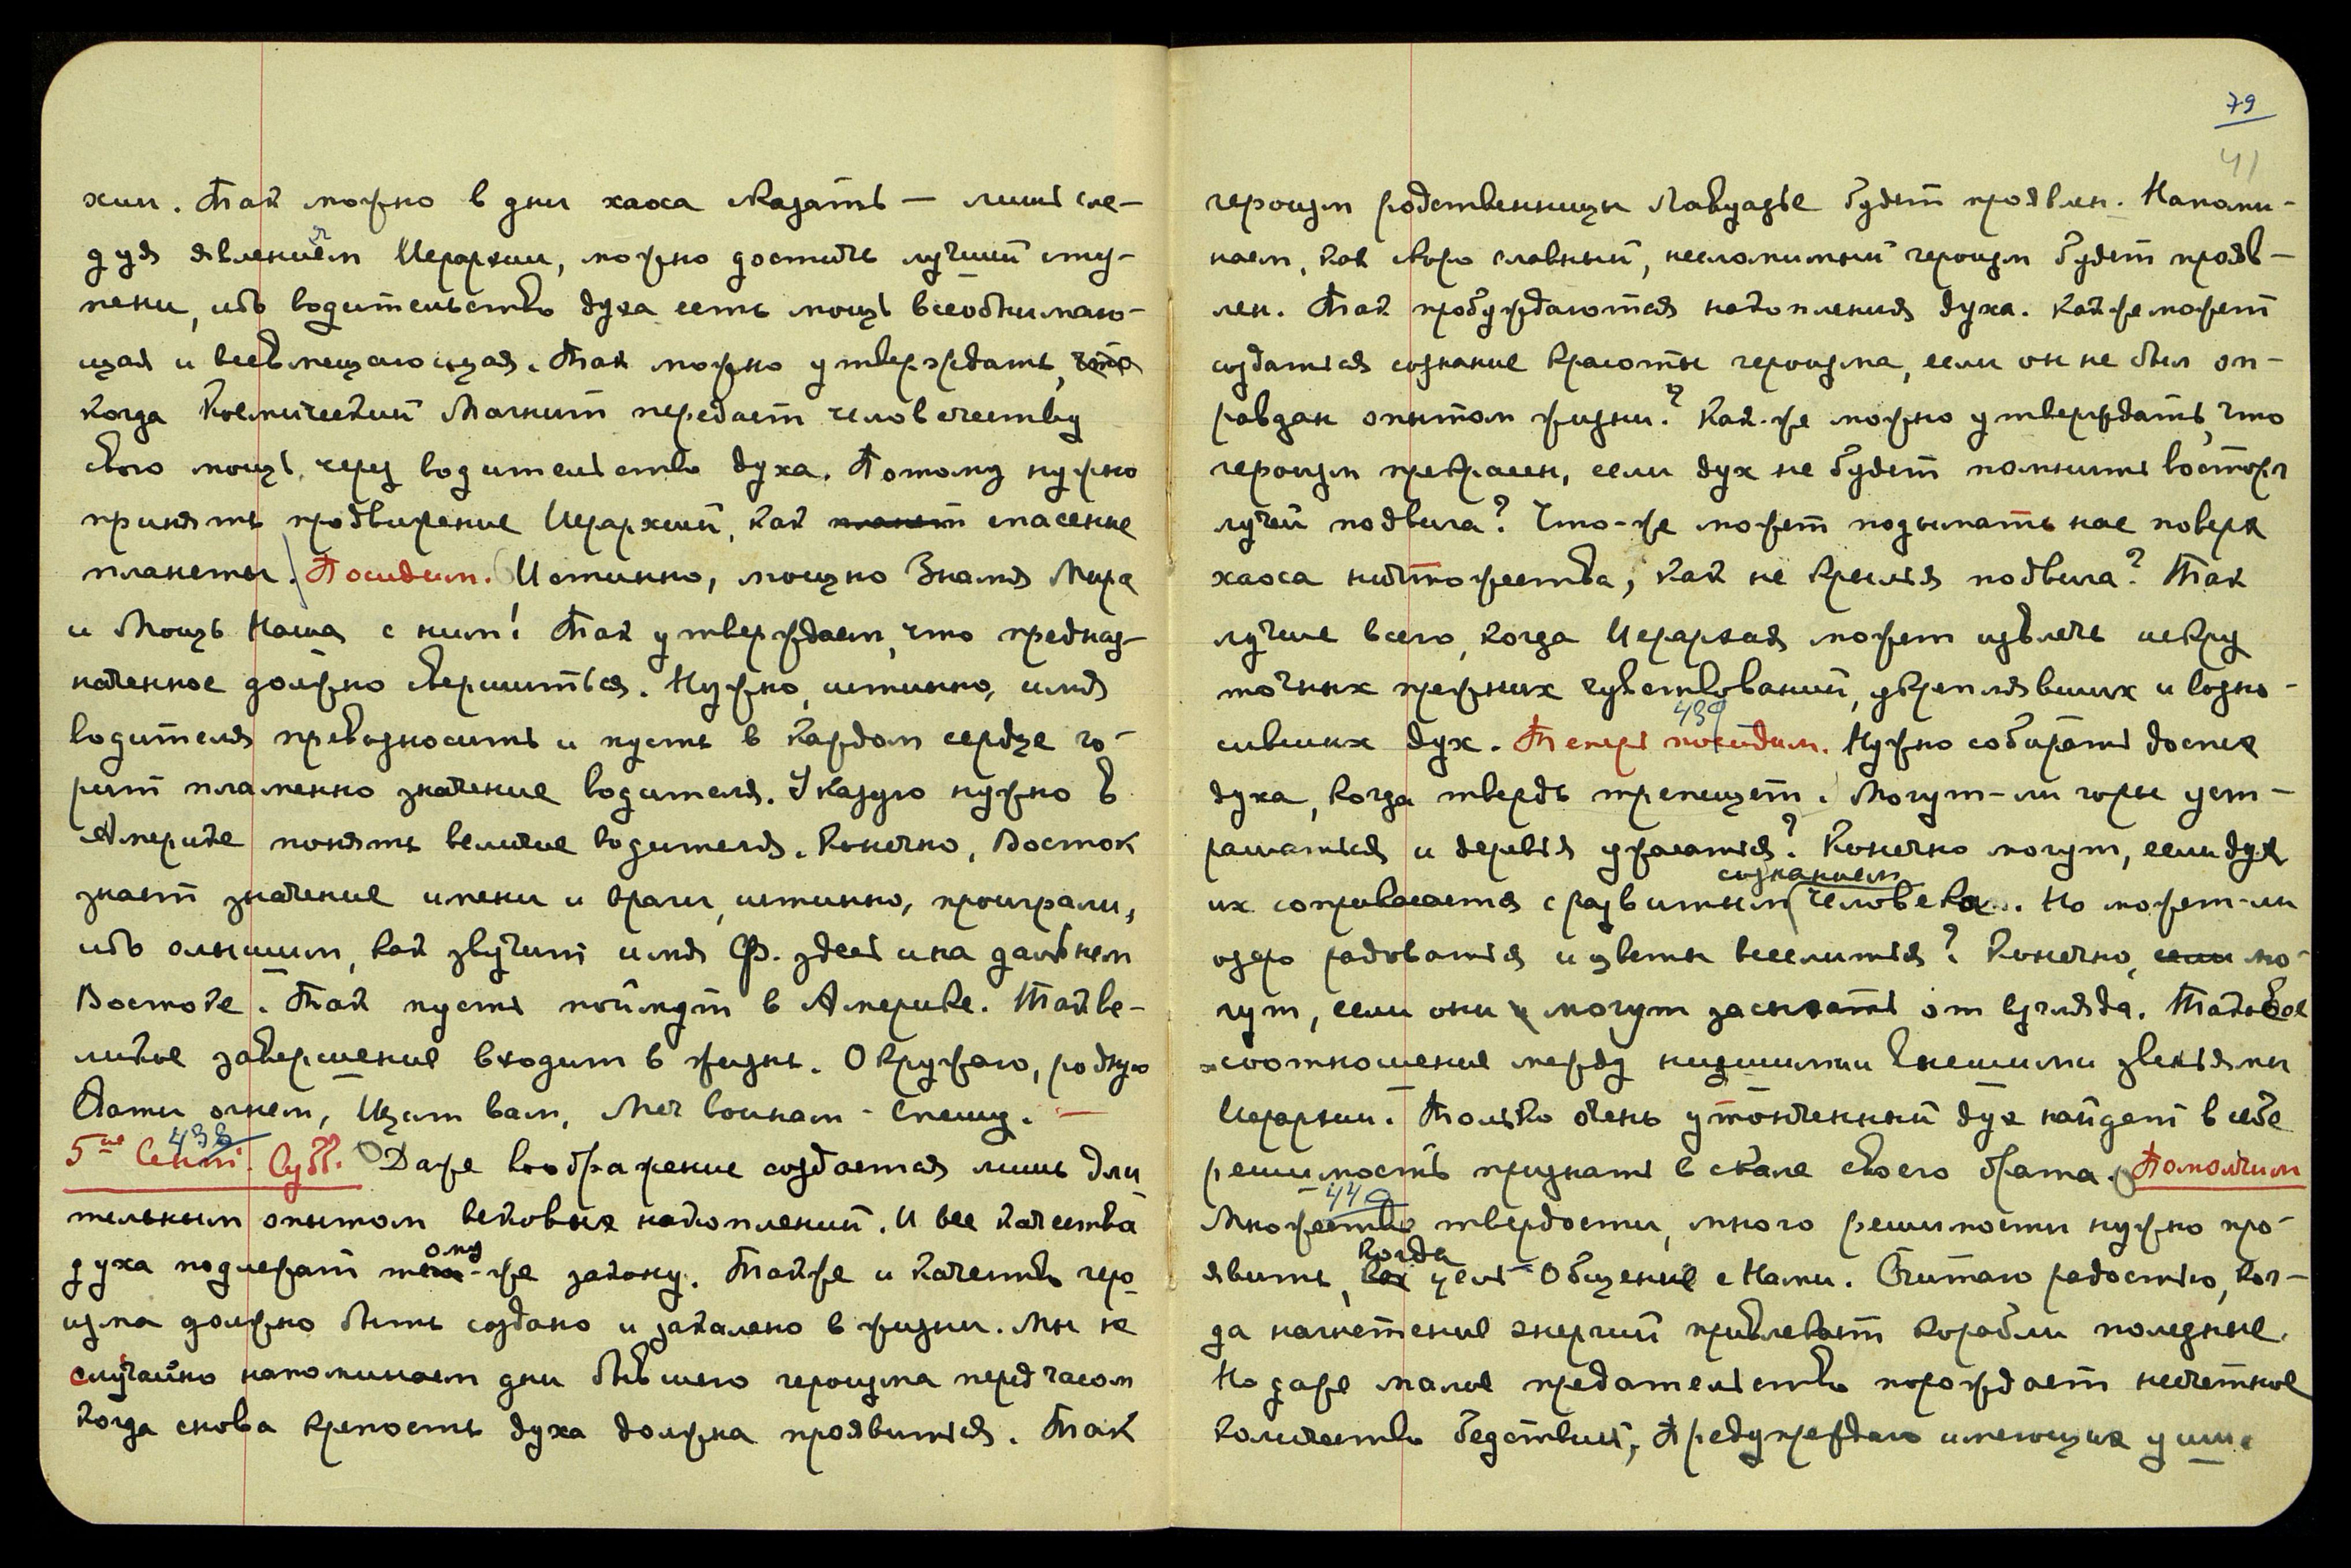 хии. Так можно в дни хаоса сказать — лишь сле-
дуя явлением Иерархии, можно достичь лучшей сту-
пени, ибо водительство духа есть мощь всеобнимаю-
щая и всевмещающая. Так можно утверждать, что
когда Космический Магнит передает человечеству
свою мощь, через водительство духа. Потому нужно
принять продвижение Иерархией, как планет спасение
планеты. Посидим. Истинно, мощно Знамя Мира
и Мощь Наша с ним! Так утверждаем, что предназ-
наченное должно свершиться. Нужно, истинно, имя
водителя превозносить и пусть в каждом сердце го-
рит пламенно значение водителя. Указую нужно в
Америке понять величие водителя. Конечно, Восток
знает значение имени и враги, истинно, проиграли,
ибо слышим, как звучит имя Ф. здесь и на дальнем
Востоке. Так пусть поймут в Америке. Так ве-
ликое завершение входит в жизнь. Окружаю, родную
Свати огнем, Щит вам, Меч воинам - Спешу. —
438
5ое Сент. Субб. Даже воображение создается лишь дли
тельным опытом вековых накоплений. И все качества
ому
духа подлежат тем-же закону. Также и качество геро
изма должно быть создано и закалено в жизни. Мы не
случайно напоминаем дни бывшего героизма перед часом
когда снова крепость духа должна проявиться. Так
79
41
героизм родственницы Лавуазье будет проявлен. Напоми-
наем, как скоро славный, несломимый героизм будет прояв-
лен. Так пробуждаются накопления духа. Как же может
создаться сознание красоты героизма, если он не был оп-
равдан опытом жизни? Как-же можно утверждать, что
героизм прекрасен, если дух не будет помнить восторг
лучей подвига? Что-же может подымать нас поверх
хаоса ничтожества, как не крылья подвига? Так
лучше всего, когда Иерархия может извлечь искру
точных прежних чувствований, укреплявших и возно-
439
сивших дух. Теперь посидим. Нужно собирать доспех
духа, когда твердь трепещет. Могут-ли горы уст-
рашаться и деревья ужасаться? Конечно могут, если дух
сознанием
их соприкасается с развитым человека. Но может-ли
озеро радоваться и цветы веселиться? Конечно, если мо-
гут, если они могут засыхать от взгляда. Таково
соотношение между низшими внешними звеньями
Иерархии. Только очень утонченный дух найдет в себе
решимость признать в скале своего брата. Помолчим
440
Множество твердости, много решимости нужно про-
когда
явить, как цель Общение с Нами. Считаю радостью, ког-
да нагнетение энергий привлекает корабли полезные.
Но даже малое предательство порождает несчетное
количество бедствий, Предупреждаю имеющих уши.